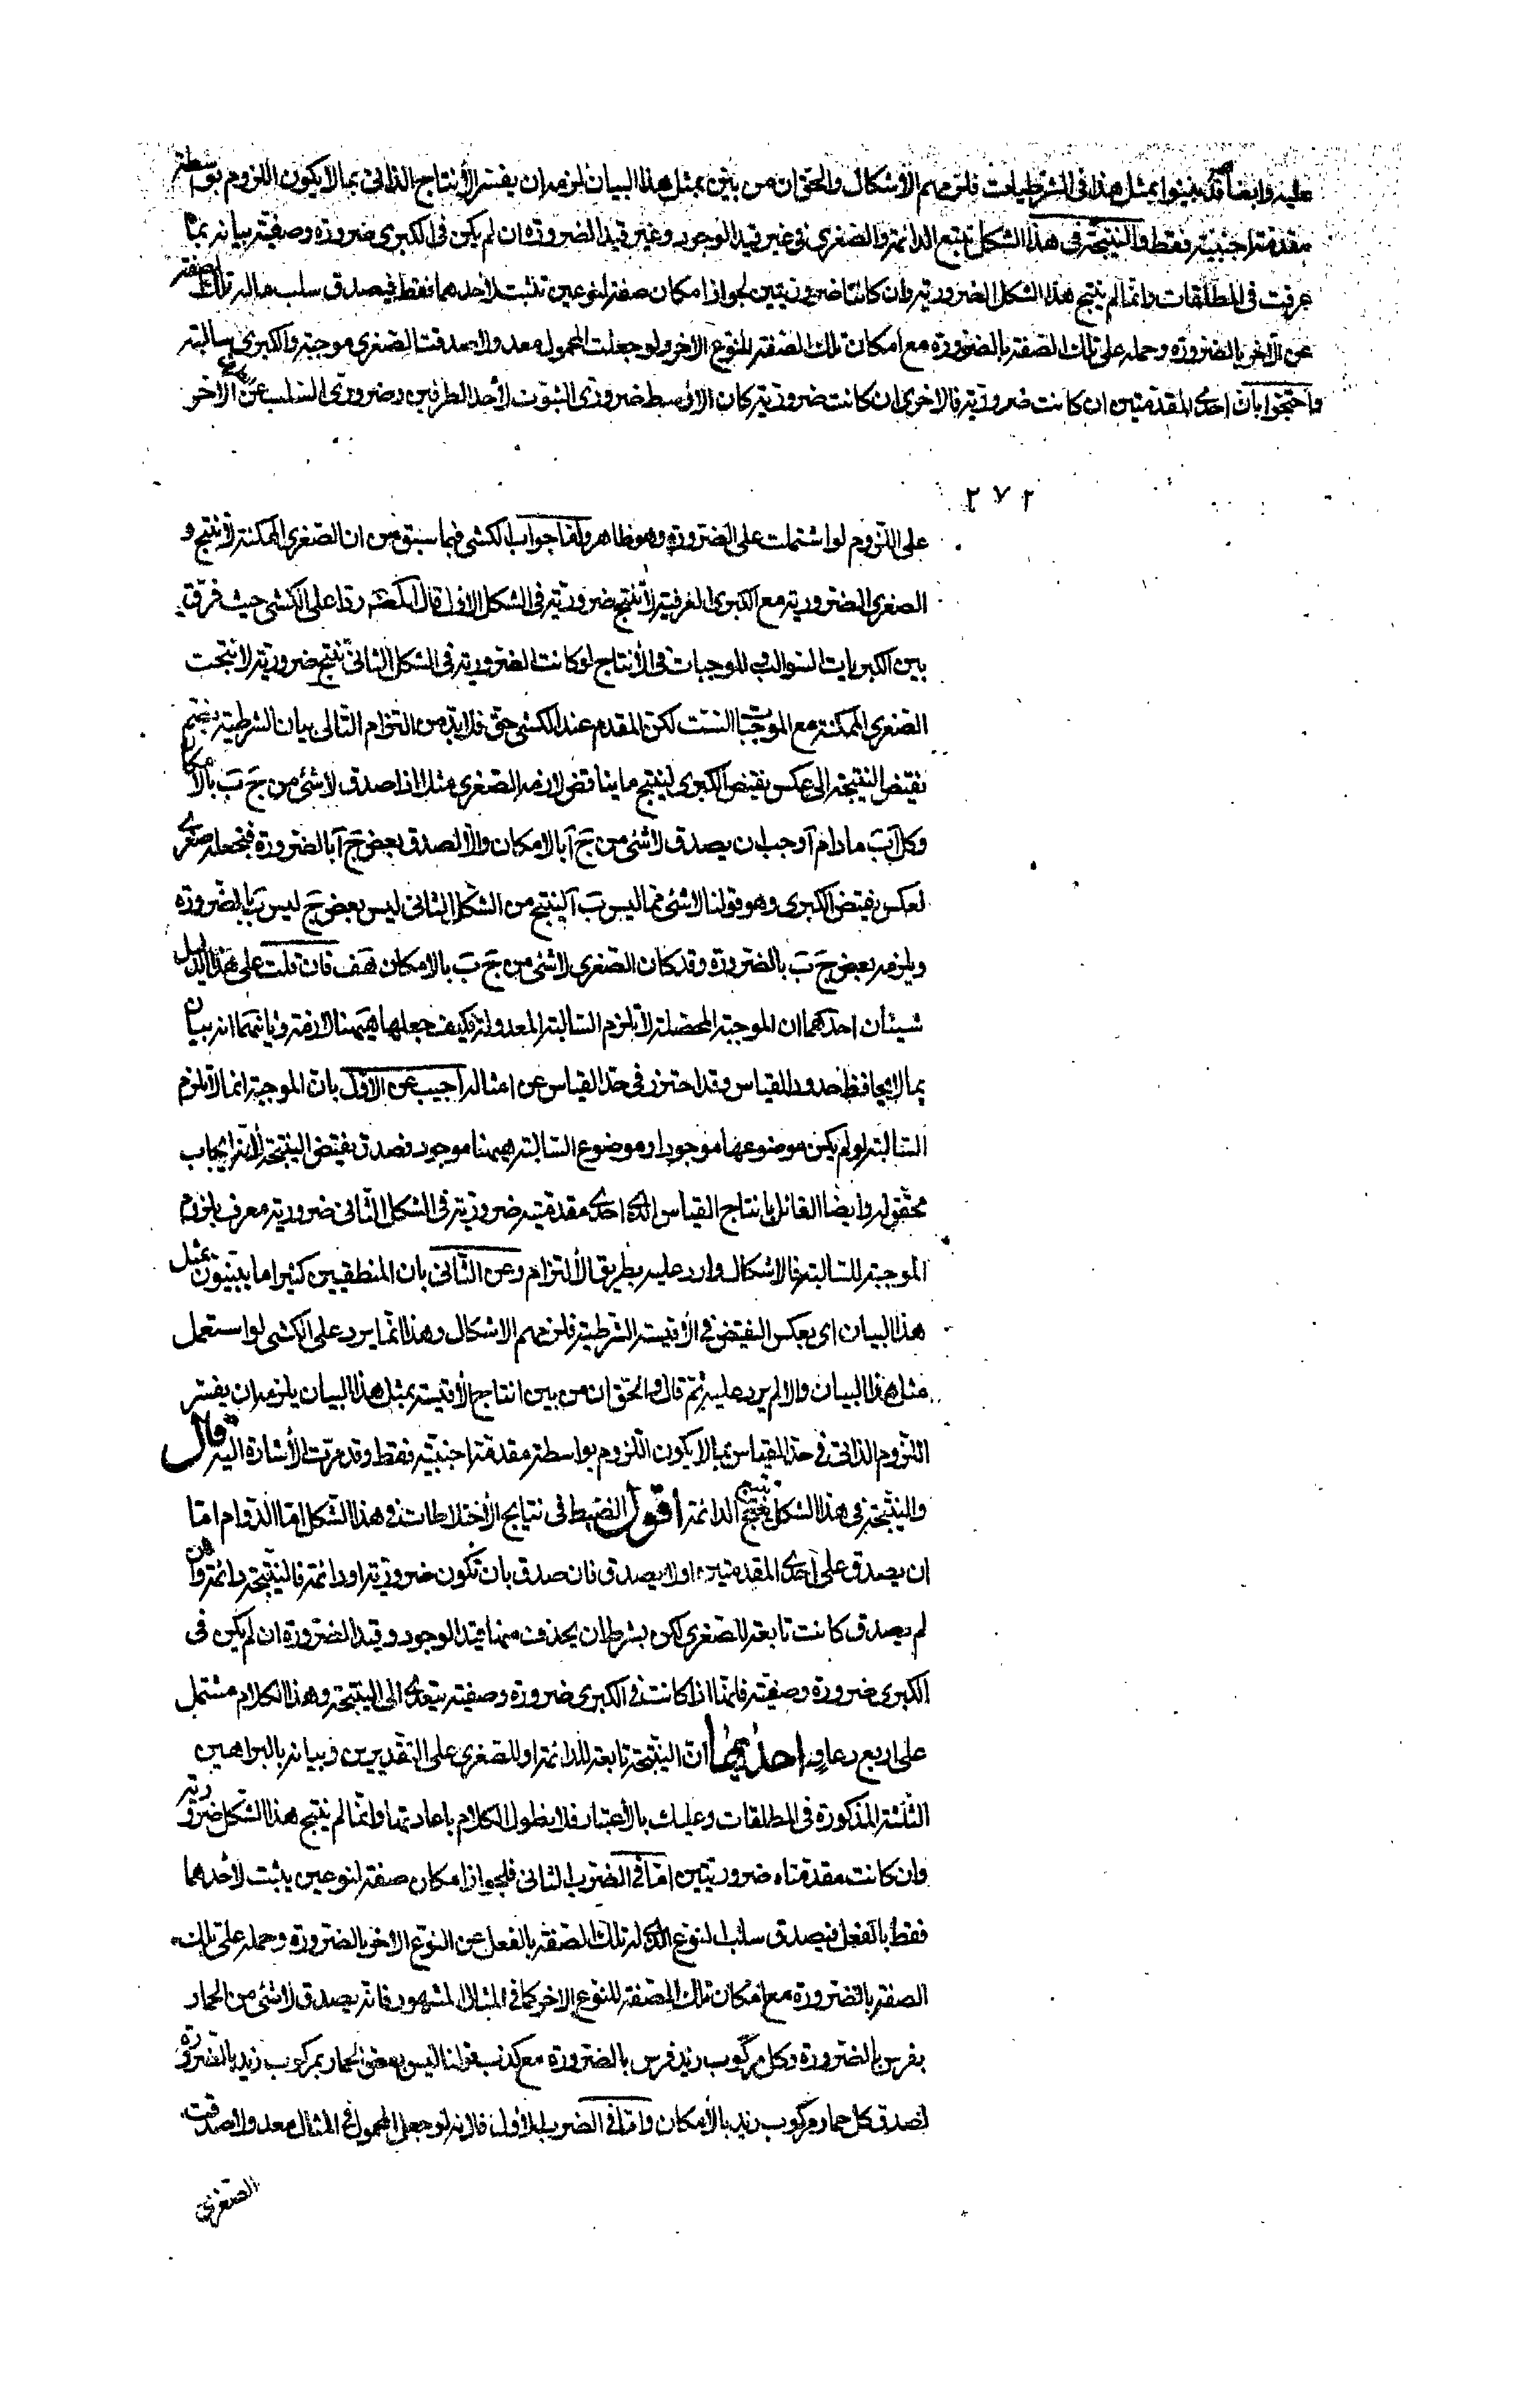 عليه وايضا قد بينوا بمثل هذا فى الشرطيات فلزمهم الأشكال والحق ان من بين بمثل هذا البيان لزمه ان يفسر الأنتاج الذاتى بما لا يكون اللزوم بواسطة
مقدمة اجنبية فقط والنتيجة فى هذا الشكل تتبع الدائمة والصغرى فى غير قيد الوجود وغير قيد الضرورة ان لم يكن فى الكبرى ضرورة وصفية بيانه بما
عرفت فى المطلقات وانما لم ينتج هذا الشكل الضرورية وان كانتا ضروريتين لجواز امكان صفة لنوعين تثبت لاحدهما فقط فيصدق سلب ماله تلك الصفة
عن الآخر بالضرورة وحمله على تلك الصفة بالضرورة مع امكان تلك الصفة للنوع الاخر ولو جعلت المحمول معدولا صدقت الصغرى موجبة والكبرى سالبة
واحتجوا بان احدى المقدمتين ان كانت ضرورية فالاخرى ان كانت ضرورية كان الاوسط ضرورى الثبوت لأحد الطرفين وضرورى السلب عن الآخر
٢٧٢
على اللزوم لو اشتملت على الضرورة وهو ظاهر واما جواب الكشى فيما سبق من ان الصغرى الممكنة لا تنتج و
الصغرى الضرورية مع الكبرى العرفية لا تنتج ضرورية فى الشكل الاول قال المصنف ردا على الكشى حيث فرق
بين الكبريات السوالب والموجبات فى الأنتاج لو كانت الضرورية فى الشكل الثانى تنتج ضرورية لانتجت
الصغرى الممكنة مع الموجبات الست لكن المقدم عند الكشى حق فلا بد من التزام التالى بيان الشرطية بضم
نقيض النتيجة الى عكس نقيض الكبرى لينتج ما يناقض لازم الصغرى مثلا اذا صدق لا شئ من ج ب بالامكان
وكل آ ب ما دام آ وجب ان يصدق لا شئ من ج آ بالامكان والا لصدق بعض ج آ بالضرورة فنجعله صغرى
لعكس نقيض الكبرى وهو قولنا لا شئ مما ليس ب آ لينتج من الشكل الثانى ليس بعض ج ليس ب بالضرورة
ويلزمه بعض ج ب بالضرورة وقد كان الصغرى لا شئ من ج ب بالامكان هف فان قلت على هذا الدليل
شيئان احدهما ان الموجبة المحصلة لا تلزم السالبة المعدولة فكيف جعلها هيهنا لازمة وثانيهما انه بيان
بما لا يحافظ حدود القياس وقد احترز فى حد القياس عن امثاله اجيب عن الاول بان الموجبة انما لا تلزم
السالبة لو لم يكن موضوعها موجودا وموضوع السالبة هيهنا موجود فصدق نقيض النتيجة لأنه ايجاب
محقق له وايضا القائل بانتاج القياس الذى احدى مقدمتيه ضرورية فى الشكل الثانى ضرورية معرف بلزوم
الموجبة للسالبة فالاشكال وارد عليه بطريق الألتزام وعن الثانى بان المنطقيين كثيرا ما يبينون بمثل
هذا البيان اى بعكس النقيض فى الأقيسة الشرطية فلزمهم الاشكال وهذا انما يرد على الكشى لو استعمل
مثل هذا البيان والا لم يرد عليه ثم قال والحق ان من بين انتاج الأقيسة بمثل هذا البيان يلزمه ان يفسر
اللزوم الذاتى فى حد القياس بما لا يكون اللزوم بواسطة مقدمة اجنبية فقط وقد مرت الأشارة اليه قال
والنتيجة فى هذا الشكل تتبع الدائمة اقول الضبط فى نتايج الأختلاطات فى هذا الشكل اما الدوام اما
ان يصدق على احدى المقدمتين او لا يصدق فان صدق بان تكون ضرورية او دائمة فالنتيجة دائمة وان
لم يصدق كانت تابعة للصغرى لكن بشرط ان يحذف منها قيد الوجود وقيد الضرورة ان لم يكن فى
الكبرى ضرورة وصفية فانها اذا كانت فى الكبرى ضرورة وصفية يتعدى الى النتيجة وهذا الكلام مشتمل
على اربع دعاو احديها ان النتيجة تابعة للدائمة او للصغرى على التقديرين وبيانه بالبراهين
الثلثة المذكورة فى المطلقات وعليك بالأعتبار فلا يطول الكلام باعادتها وانما لم ينتج هذا الشكل ضرورية
وان كانت مقدمتاه ضروريتين اما فى الضرب الثانى فلجواز امكان صفة لنوعين يثبت لأحدهما
فقط بالفعل فيصدق سلب النوع الذى له تلك الصفة بالفعل عن النوع الاخر بالضرورة وحمله على تلك
الصفة بالضرورة مع امكان تلك الصفة للنوع الاخر كما فى المثال المشهور فانه يصدق لا شئ من الحمار
بفرس بالضرورة وكل مركوب زيد فرس بالضرورة مع كذب قولنا ليس بعض الحمار بمركوب زيد بالضرورة
لصدق كل حمار مركوب زيد بالأمكان واما فى الضرب الأول فلانه لو جعل المحمول فى المثال معدولا صدقت
الصغرى